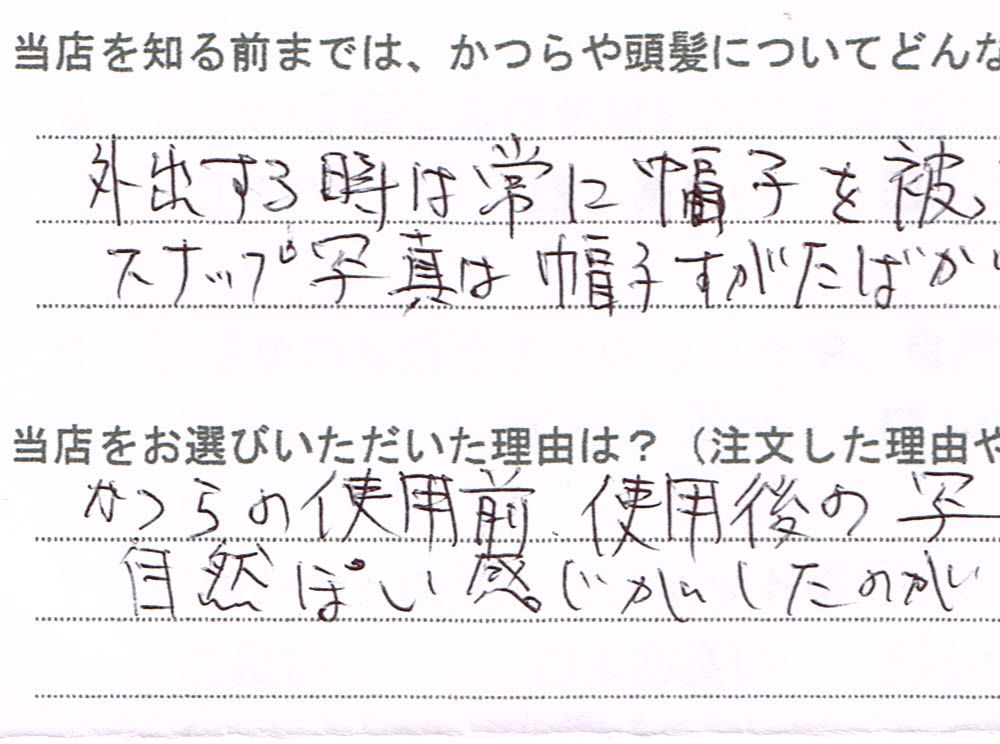 当店を知る前までは、かつらや頭髪についてどんな
外出する時は常に帽子を被っ
スナップ写真は帽子すがたばかり
当店をお選びいただいた理由は？（注文した理由や
かつらの使用前、使用後の写
自然ぽい感じがしたのが